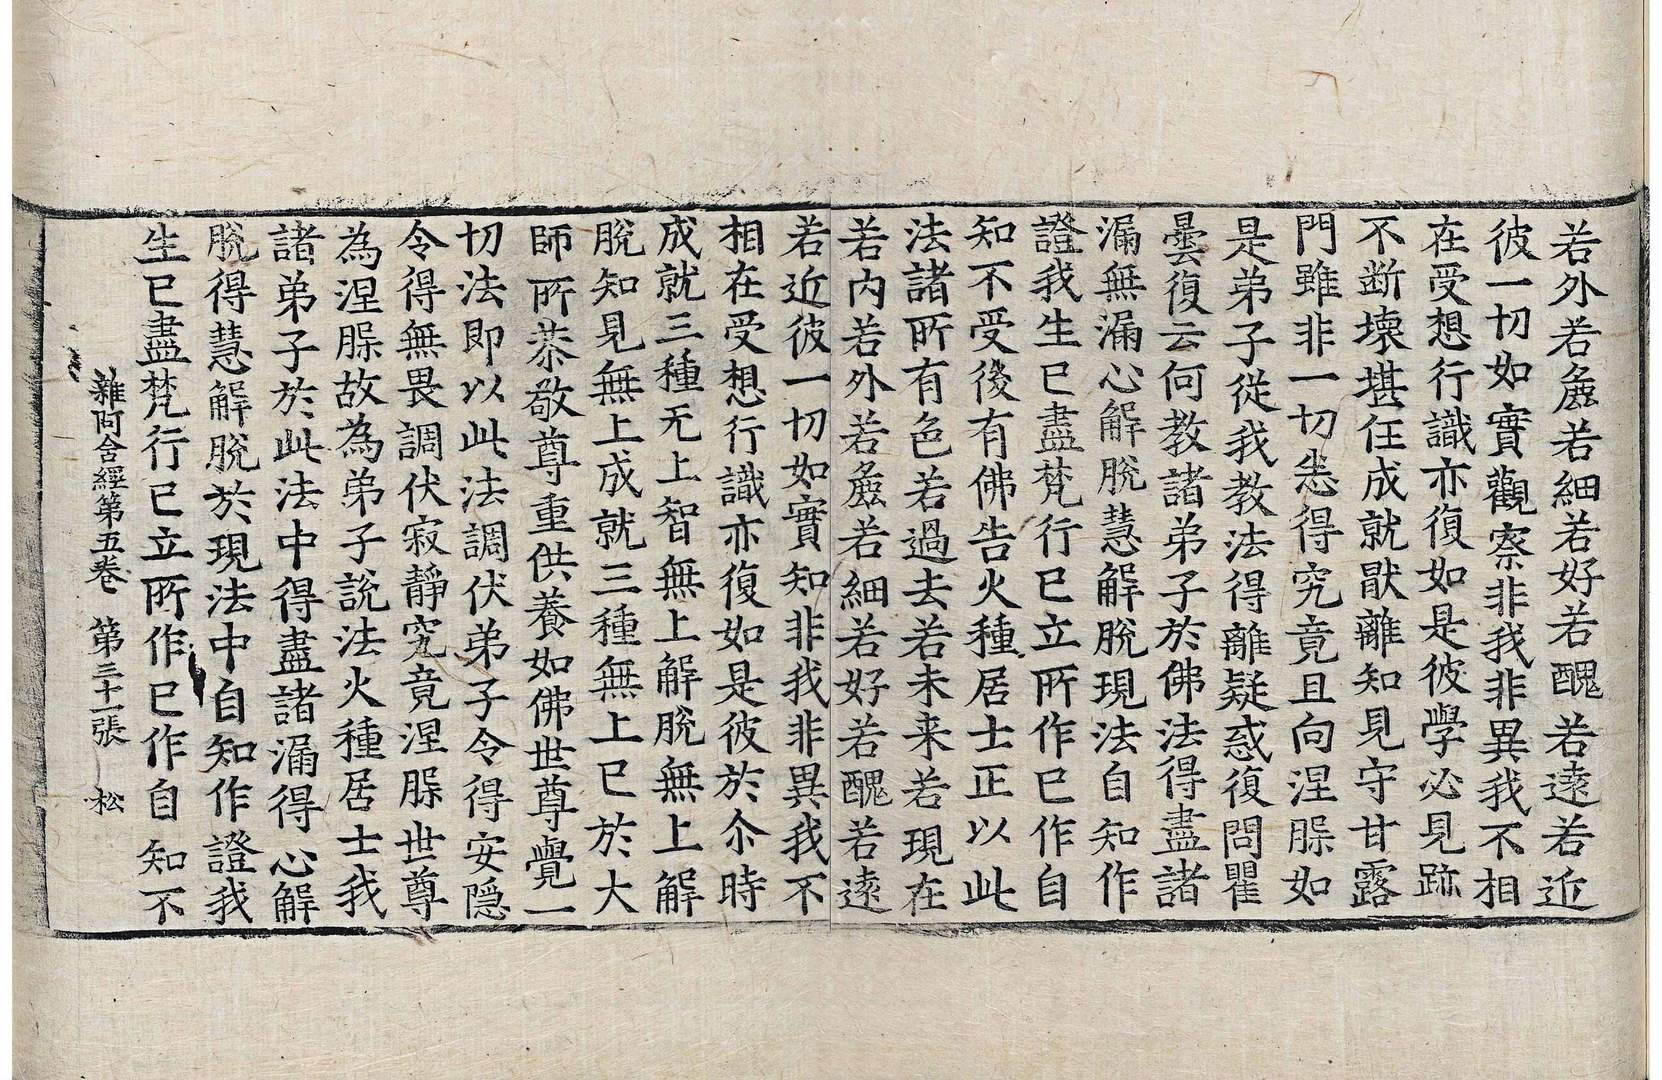 若外若麁若細若好若醜若遠若近
彼一切如實觀察非我非異我不相
在受想行識亦復如是彼學必見跡
不断壞堪任成就猒離知見守甘露
門雖非一切悉得究竟且向涅槃如
是弟子從我教法得離疑惑復問瞿
曇復云何教諸弟子於佛法得盡諸
漏無漏心解脫慧解脫現法自知作
證我生已盡梵行已立所作已作自
知不受後有佛告火種居士正以此
法諸所有色若過去若未来若現在
若内若外若麁若細若好若醜若遠
若近彼一切如實知非我非異我不
相在受想行識亦復如是彼於尒時
成就三種无上智無上解脫無上解
脫知見無上成就三種無上已於大
師所恭敬尊重供養如佛世尊覺一
切法即以此法調伏弟子令得安隱
令得無畏調伏寂靜究竟涅槃世尊
為涅槃故為弟子說法火種居士我
諸弟子於此法中得盡諸漏得心解
脫得慧解脫於現法中自知作證我
生已盡梵行已立所作已作自知不
雜阿含經第五卷 第三十一張 松